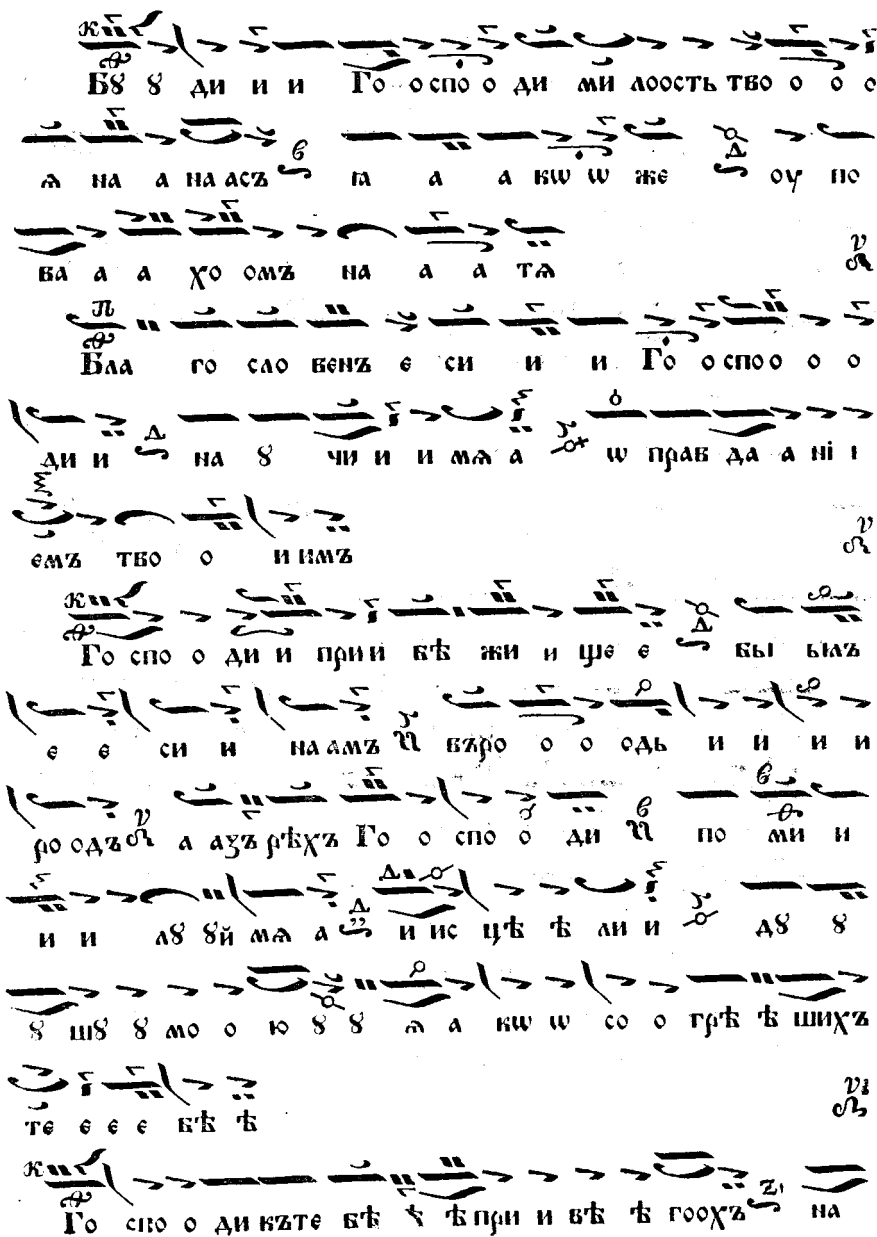 Бꙋ ꙋ ди и и Го о спо о ди ми лоость тво о о о
ѧ на а на асъ ꙗ а а кѡ ѡ же оу по
ва а а а хо омъ на а а тѧ
Бла го сло венъ е си и и Го о спо о о о
ди и на ꙋ чи и и мѧ а ѡ прав да а ні і
емъ тво о и имъ
Го спо о ди и прии бѣ жи и ще е бы ылъ
е е си и на амъ въ ро о о о одь и и и и
ро одъ а азъ рѣхъ Го о спо о ди по ми и
и и лꙋ ꙋй мѧ а и ис цѣ ѣ ли и дꙋ ꙋ
ꙋ шꙋ ꙋ мо о ю ꙋ ꙋ ѧ а кѡ ѡ со о грѣ ѣ шихъ
те е е е бѣ ѣ
Го спо о ди къ те бѣ ѣ ѣ при и бѣ ѣ гоохъ на